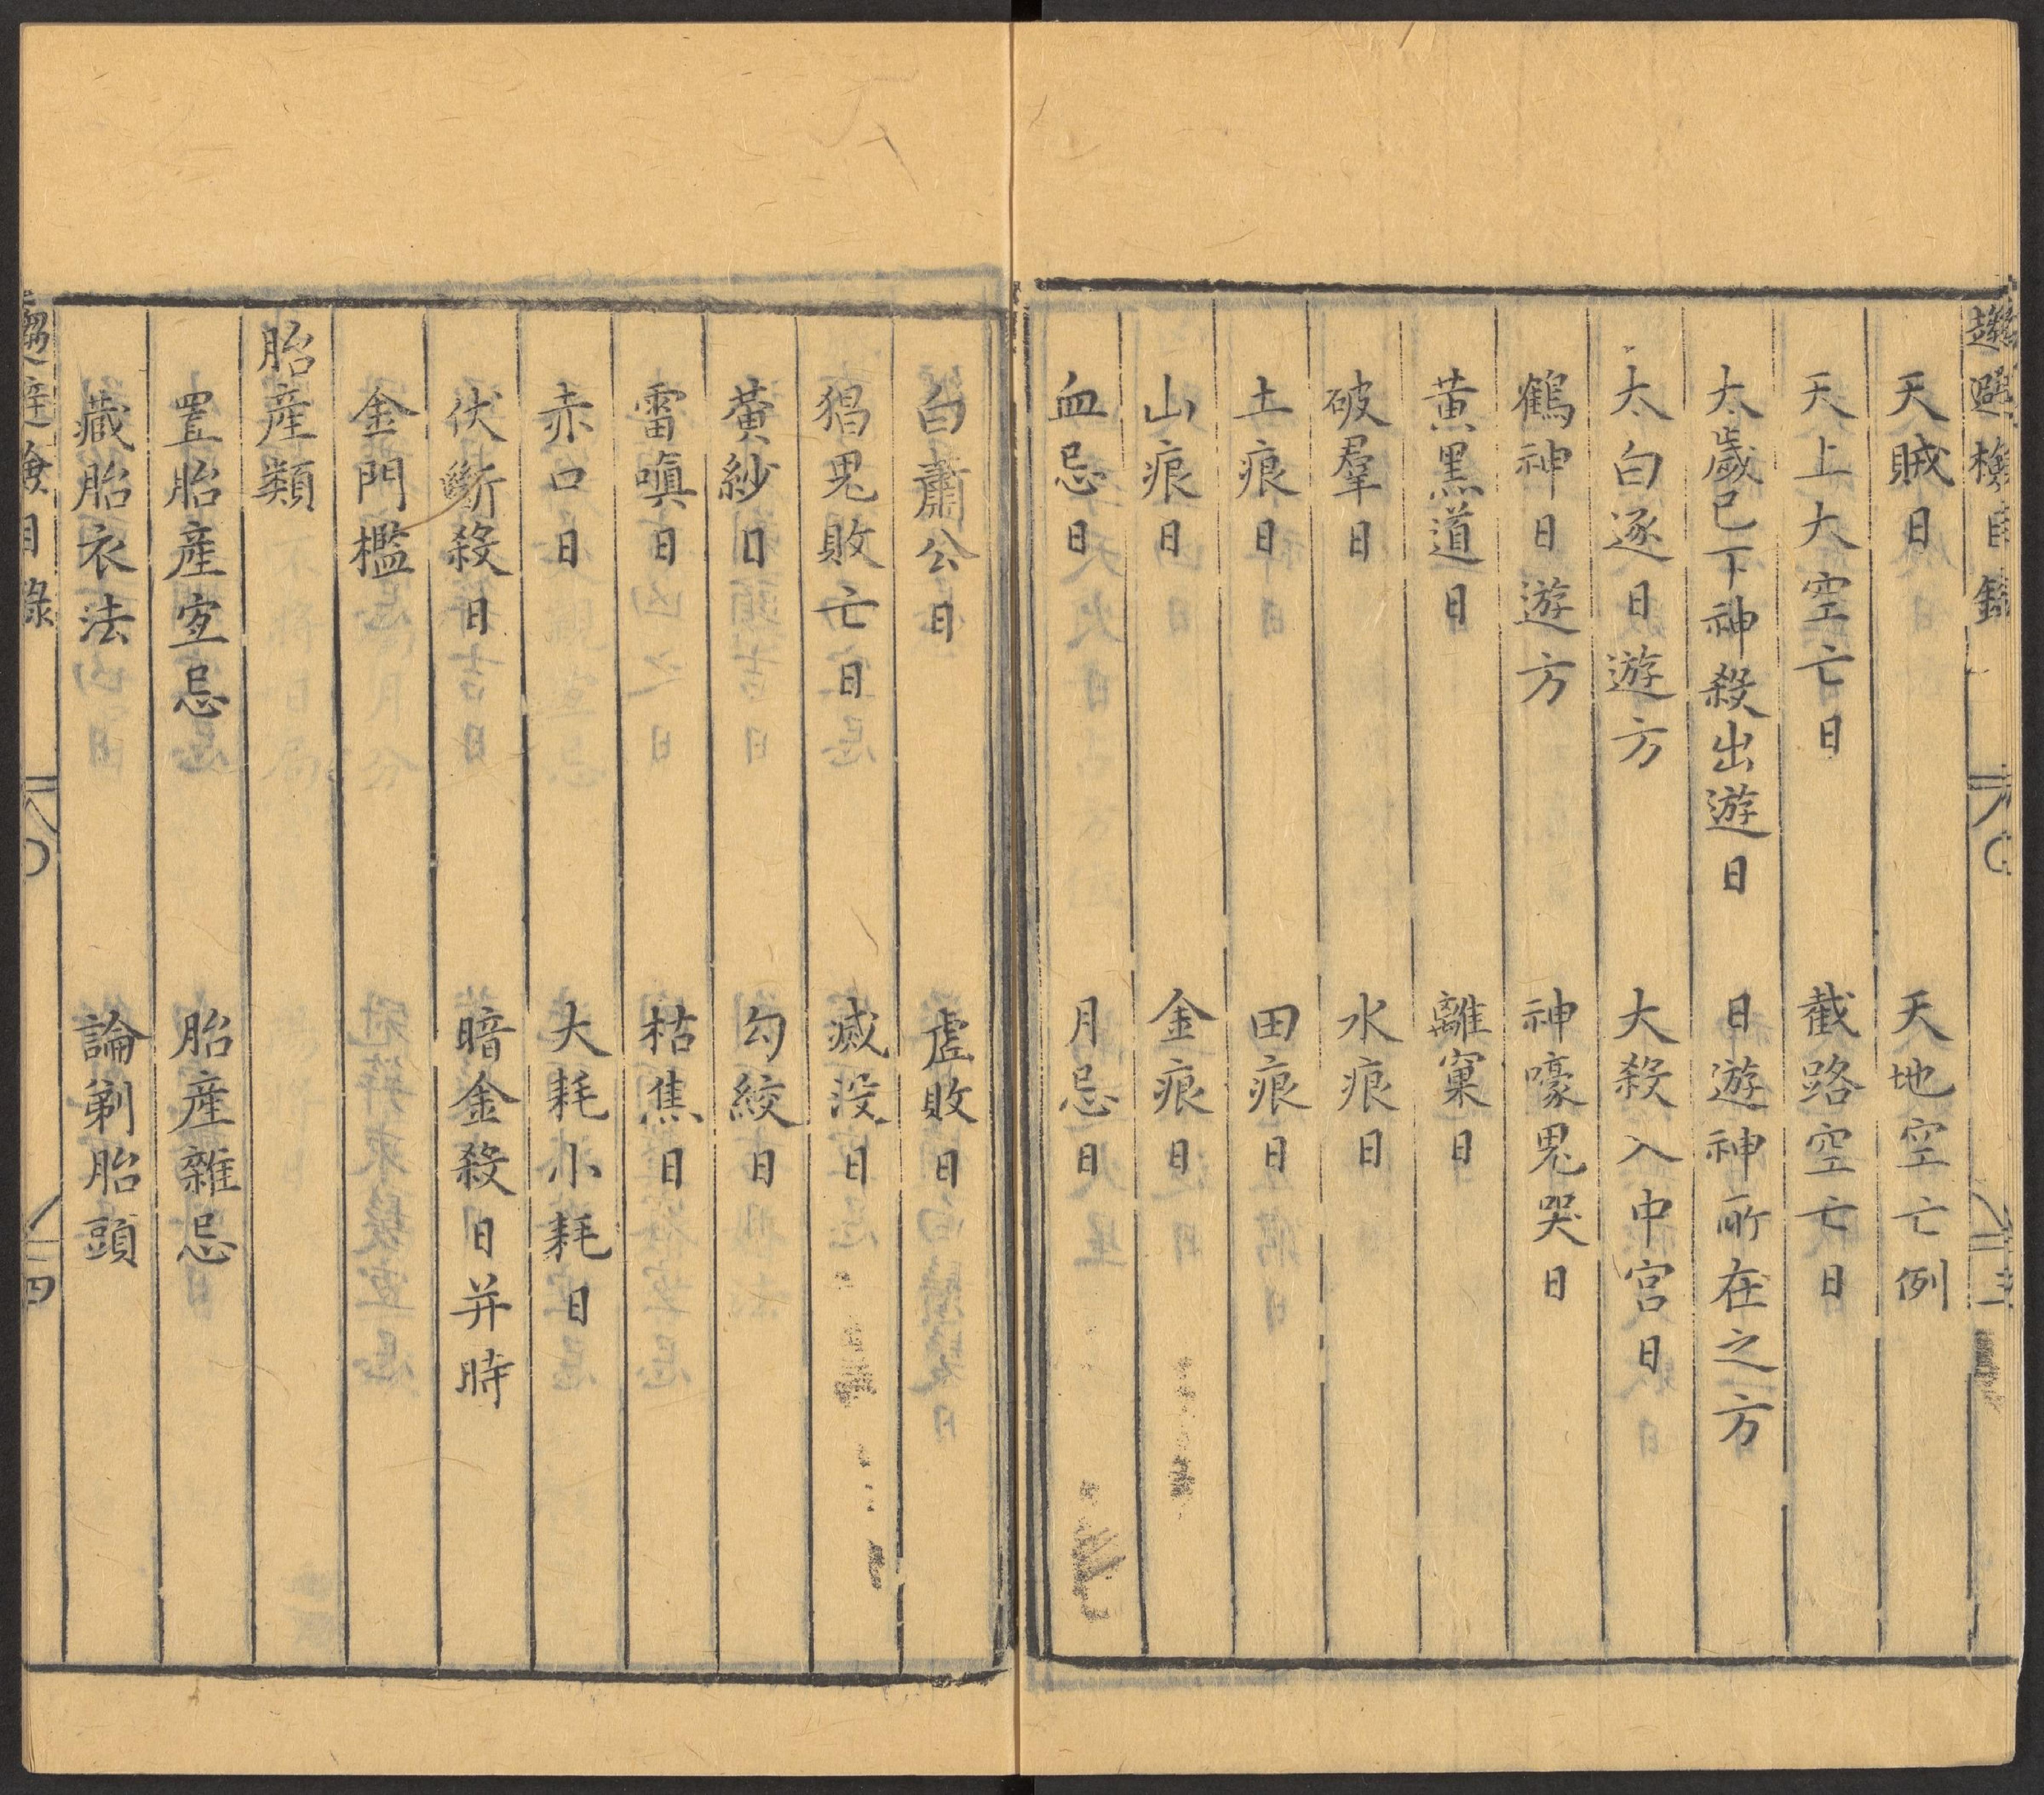 趨避檢目錄 三
天賊日 天地空亡例
天上大空亡日 截路空亡日
太歲已下神殺出遊日 日遊神所在之方
太白逐日遊方 大殺入中宮日
鶴神日遊方 神嚎鬼哭日
黃黑道日 離窠日
破羣日 水痕日
土痕日 田痕日
山痕日 金痕日
血忌日 月忌日
白蕭公日 虛敗日
猖鬼敗亡日 滅没日
黃紗日 勾絞日
雷嗔日 枯焦日
赤口日 大耗小耗日
伏斷殺日 暗金殺日并時
金門檻
胎產類
置胎產宜忌 胎產雜忌
藏胎衣法 論剃胎頭
趨避檢目錄 四